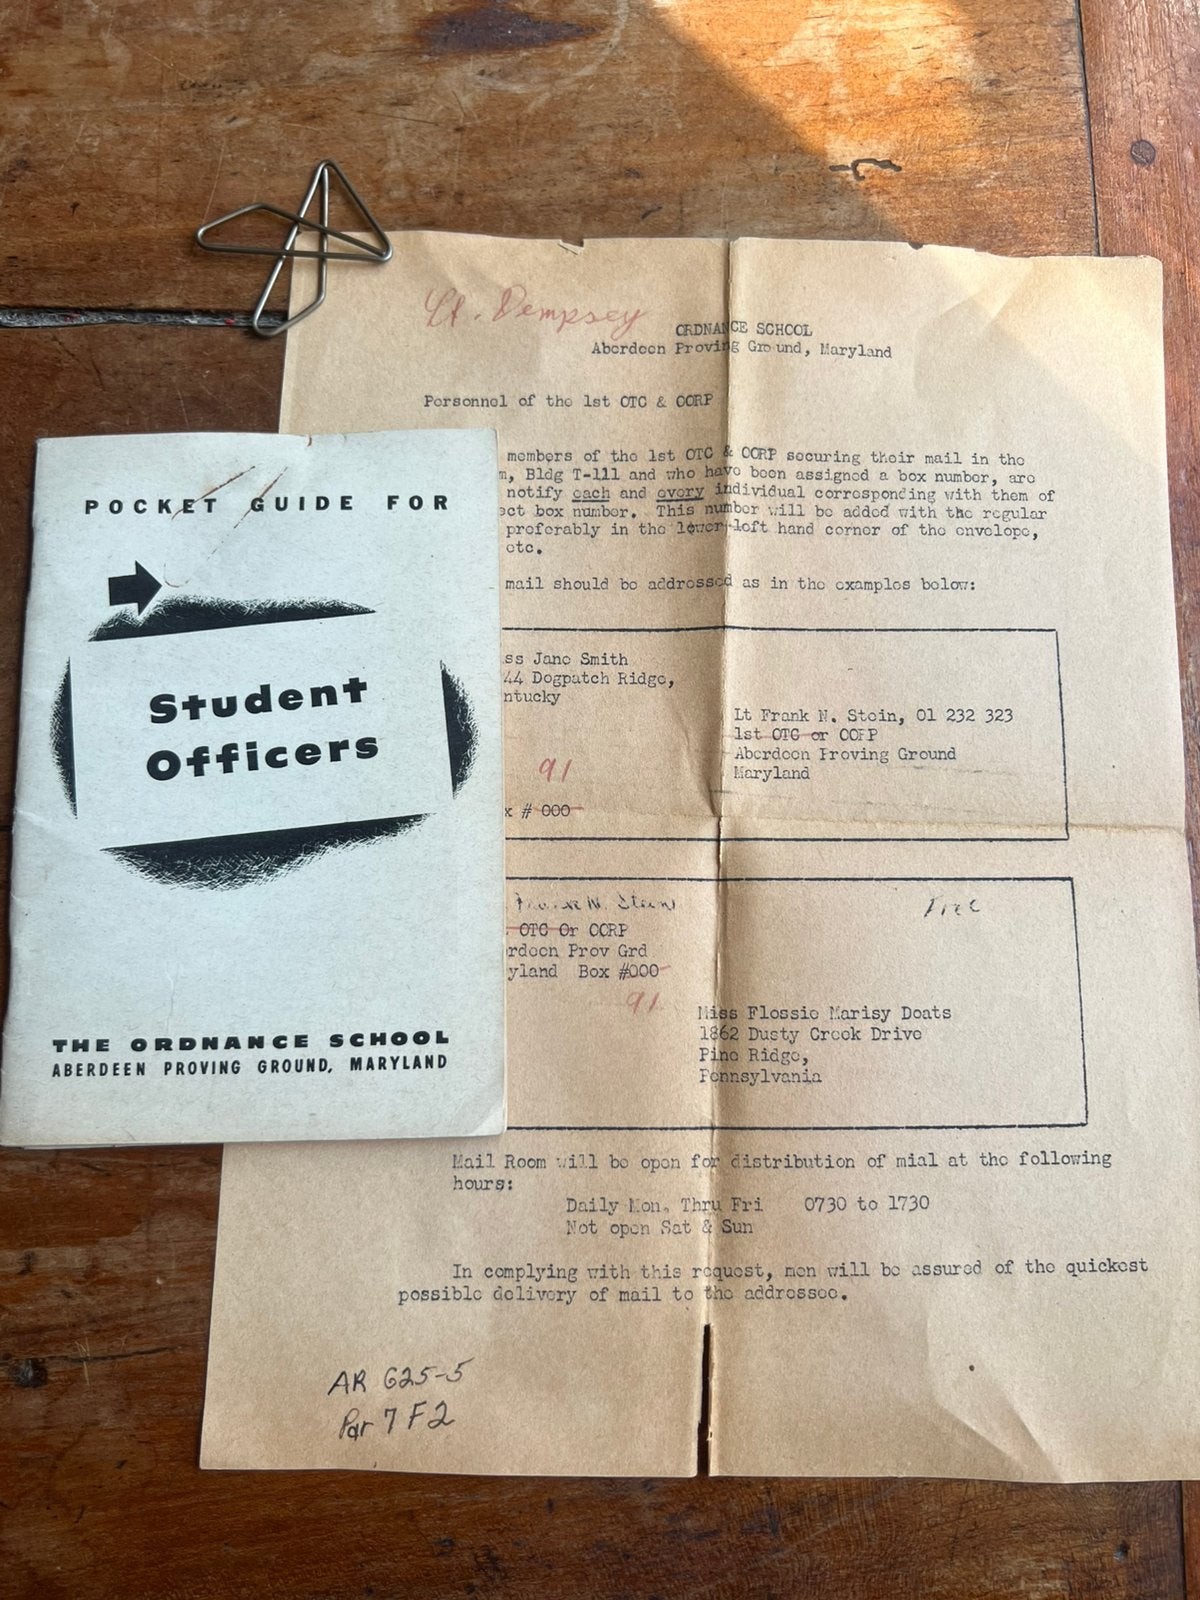 POCKET GUIDE FOR
Student
Officers
THE ORDNANCE SCHOOL
ABERDEEN PROVING GROUND, MARYLAND
Lt. Dempsey
ORDNANCE SCHOOL
Aberdeen Proving Ground, Maryland
Personnel of the 1st OTC & OORP
members of the 1st OTC & OORP securing their mail in the
m, Bldg T-111 and who have been assigned a box number, are
notify each and every individual corresponding with them of
ect box number. This number will be added with the regular
preferably in the lower left hand corner of the envelope,
etc.
mail should be addressed as in the examples below:
ss Jane Smith
44 Dogpatch Ridge,
ntucky
Lt Frank N. Stein, O1 232 323
1st OTC or OORP
Aberdeen Proving Ground
Maryland
91
x # 000
Frank N. Stein
Free
OTC Or OORP
rdeen Prov Grd
yland Box #000
91
Miss Flossie Marisy Doats
1862 Dusty Creek Drive
Pine Ridge,
Pennsylvania
Mail Room will be open for distribution of mial at the following
hours:
Daily Mon. Thru Fri 0730 to 1730
Not open Sat & Sun
In complying with this request, men will be assured of the quickest
possible delivery of mail to the addressee.
AR 625-5
Par 7 F2